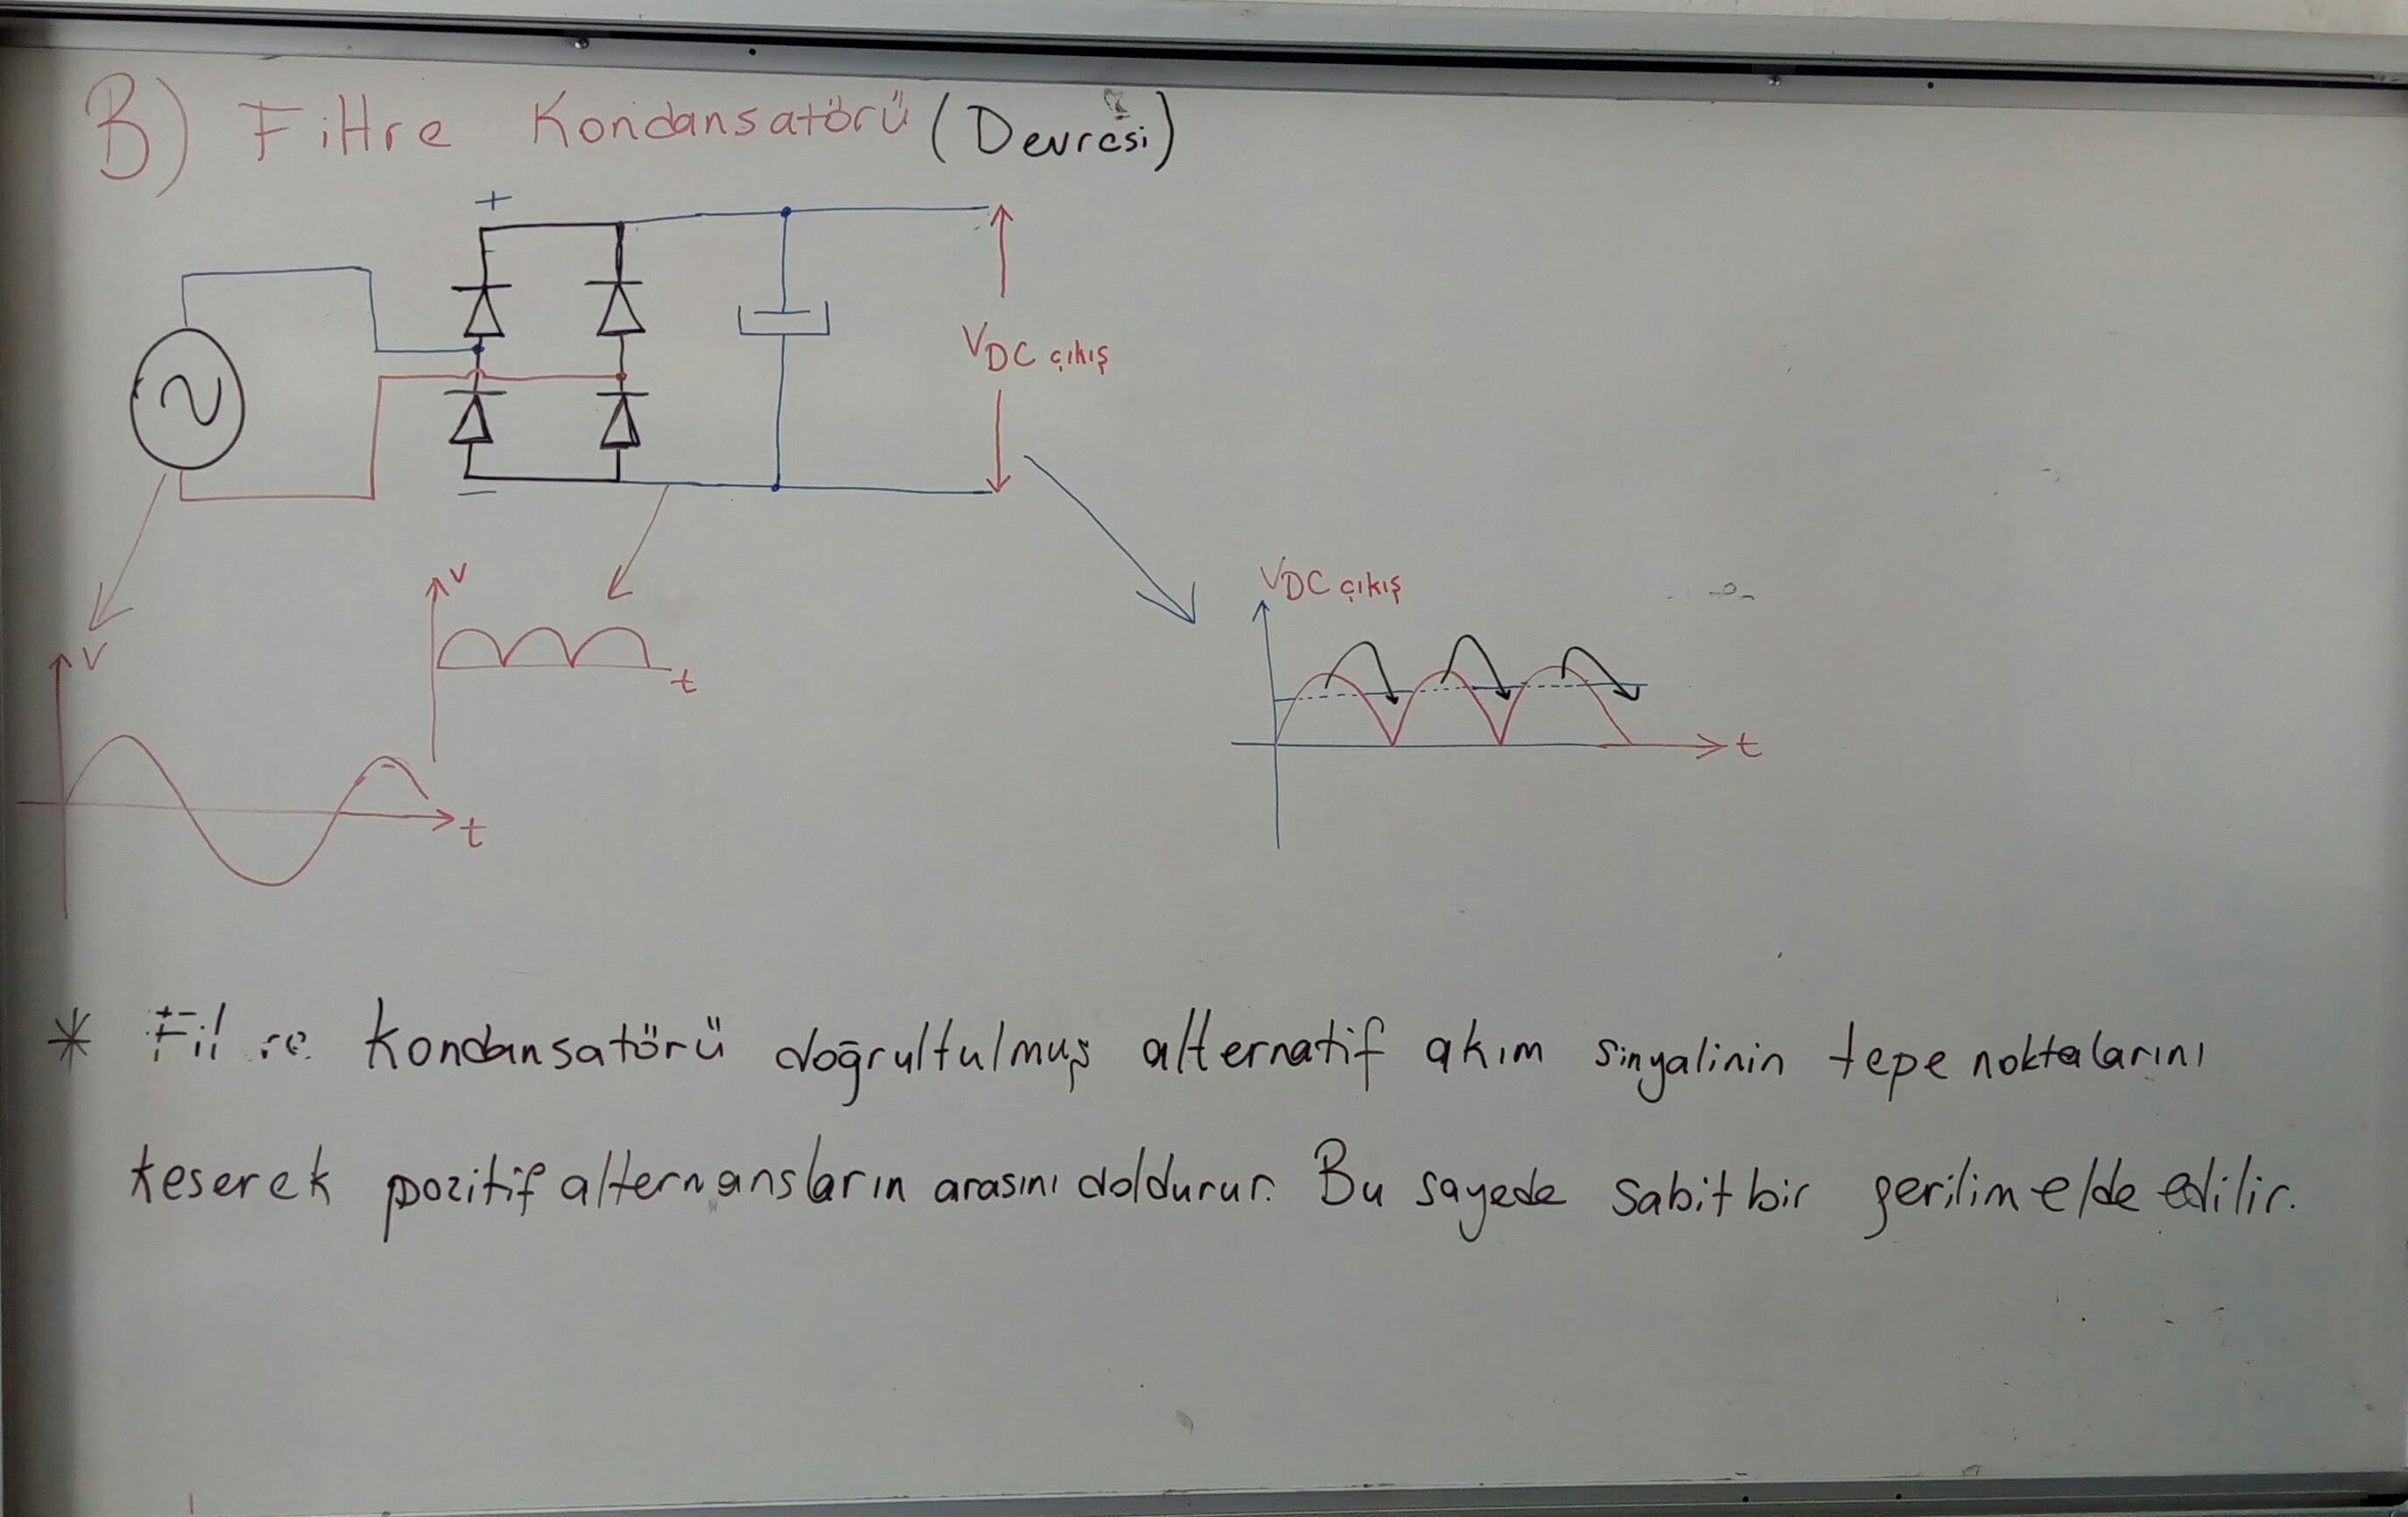 B) Filtre Kondansatörü (Devresi)
+
VDC çıkış
−
V
t
V
t
VDC çıkış
t
* Filtre kondansatörü doğrultulmuş alternatif akım sinyalinin tepe noktalarını
keserek pozitif alternansların arasını doldurur. Bu sayede sabit bir gerilim elde edilir.